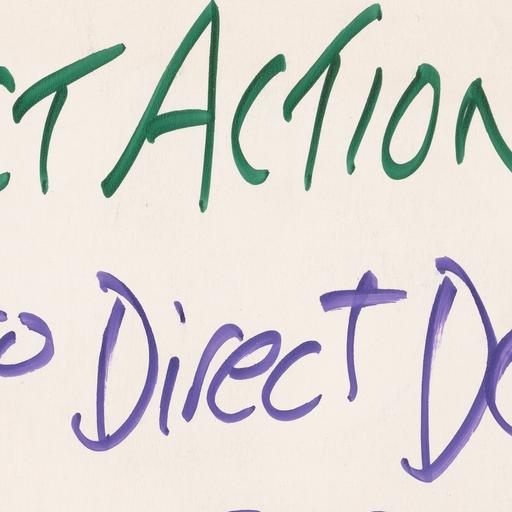 CT ACTION
o Direct De